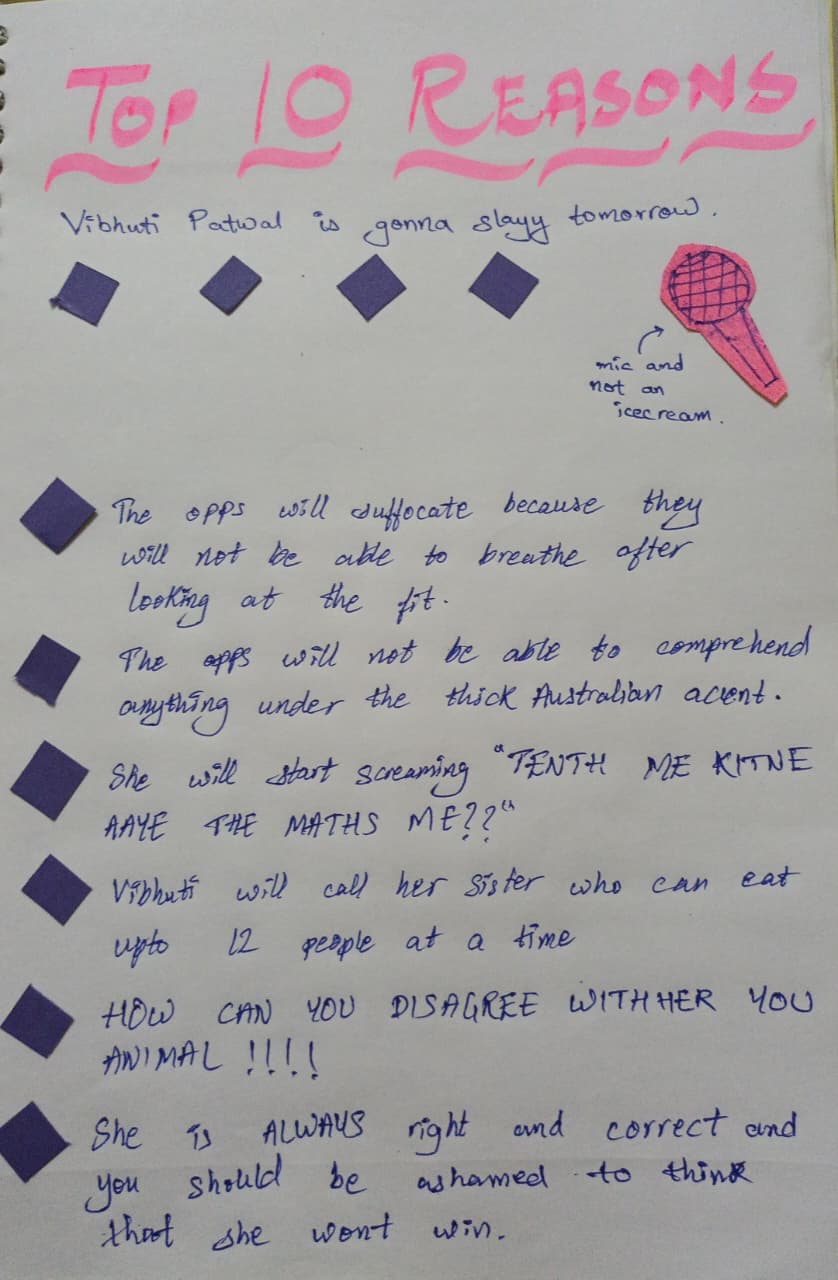 TOP 10 REASONS
Vibhuti Patwal is gonna slayy tomorrow.
mic and
not an
icecream.
The opps will suffocate because they
will not be able to breathe after
looking at the fit.
The opps will not be able to comprehend
anything under the thick Australian accent.
She will start screaming "TENTH ME KITNE
AAYE THE MATHS ME??"
Vibhuti will call her sister who can eat
upto 12 people at a time
HOW CAN YOU DISAGREE WITH HER YOU
ANIMAL !!!!
She is ALWAYS right and correct and
you should be ashamed to think
that she wont win.